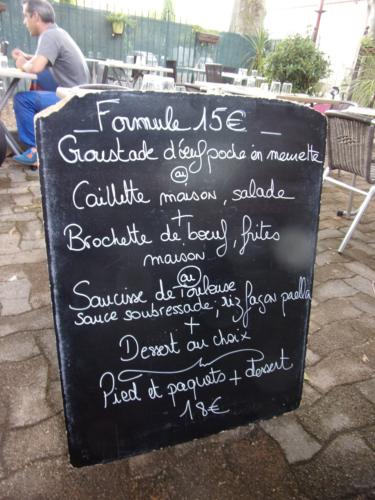 Formule 15€
Croustade d'œuf poché en meurette
ou
Caillette maison, salade
+
Brochette de bœuf, frites
maison
ou
Saucisse de Toulouse
sauce soubressade, riz façon paella
+
Dessert au choix
Pied et paquets + dessert
18€